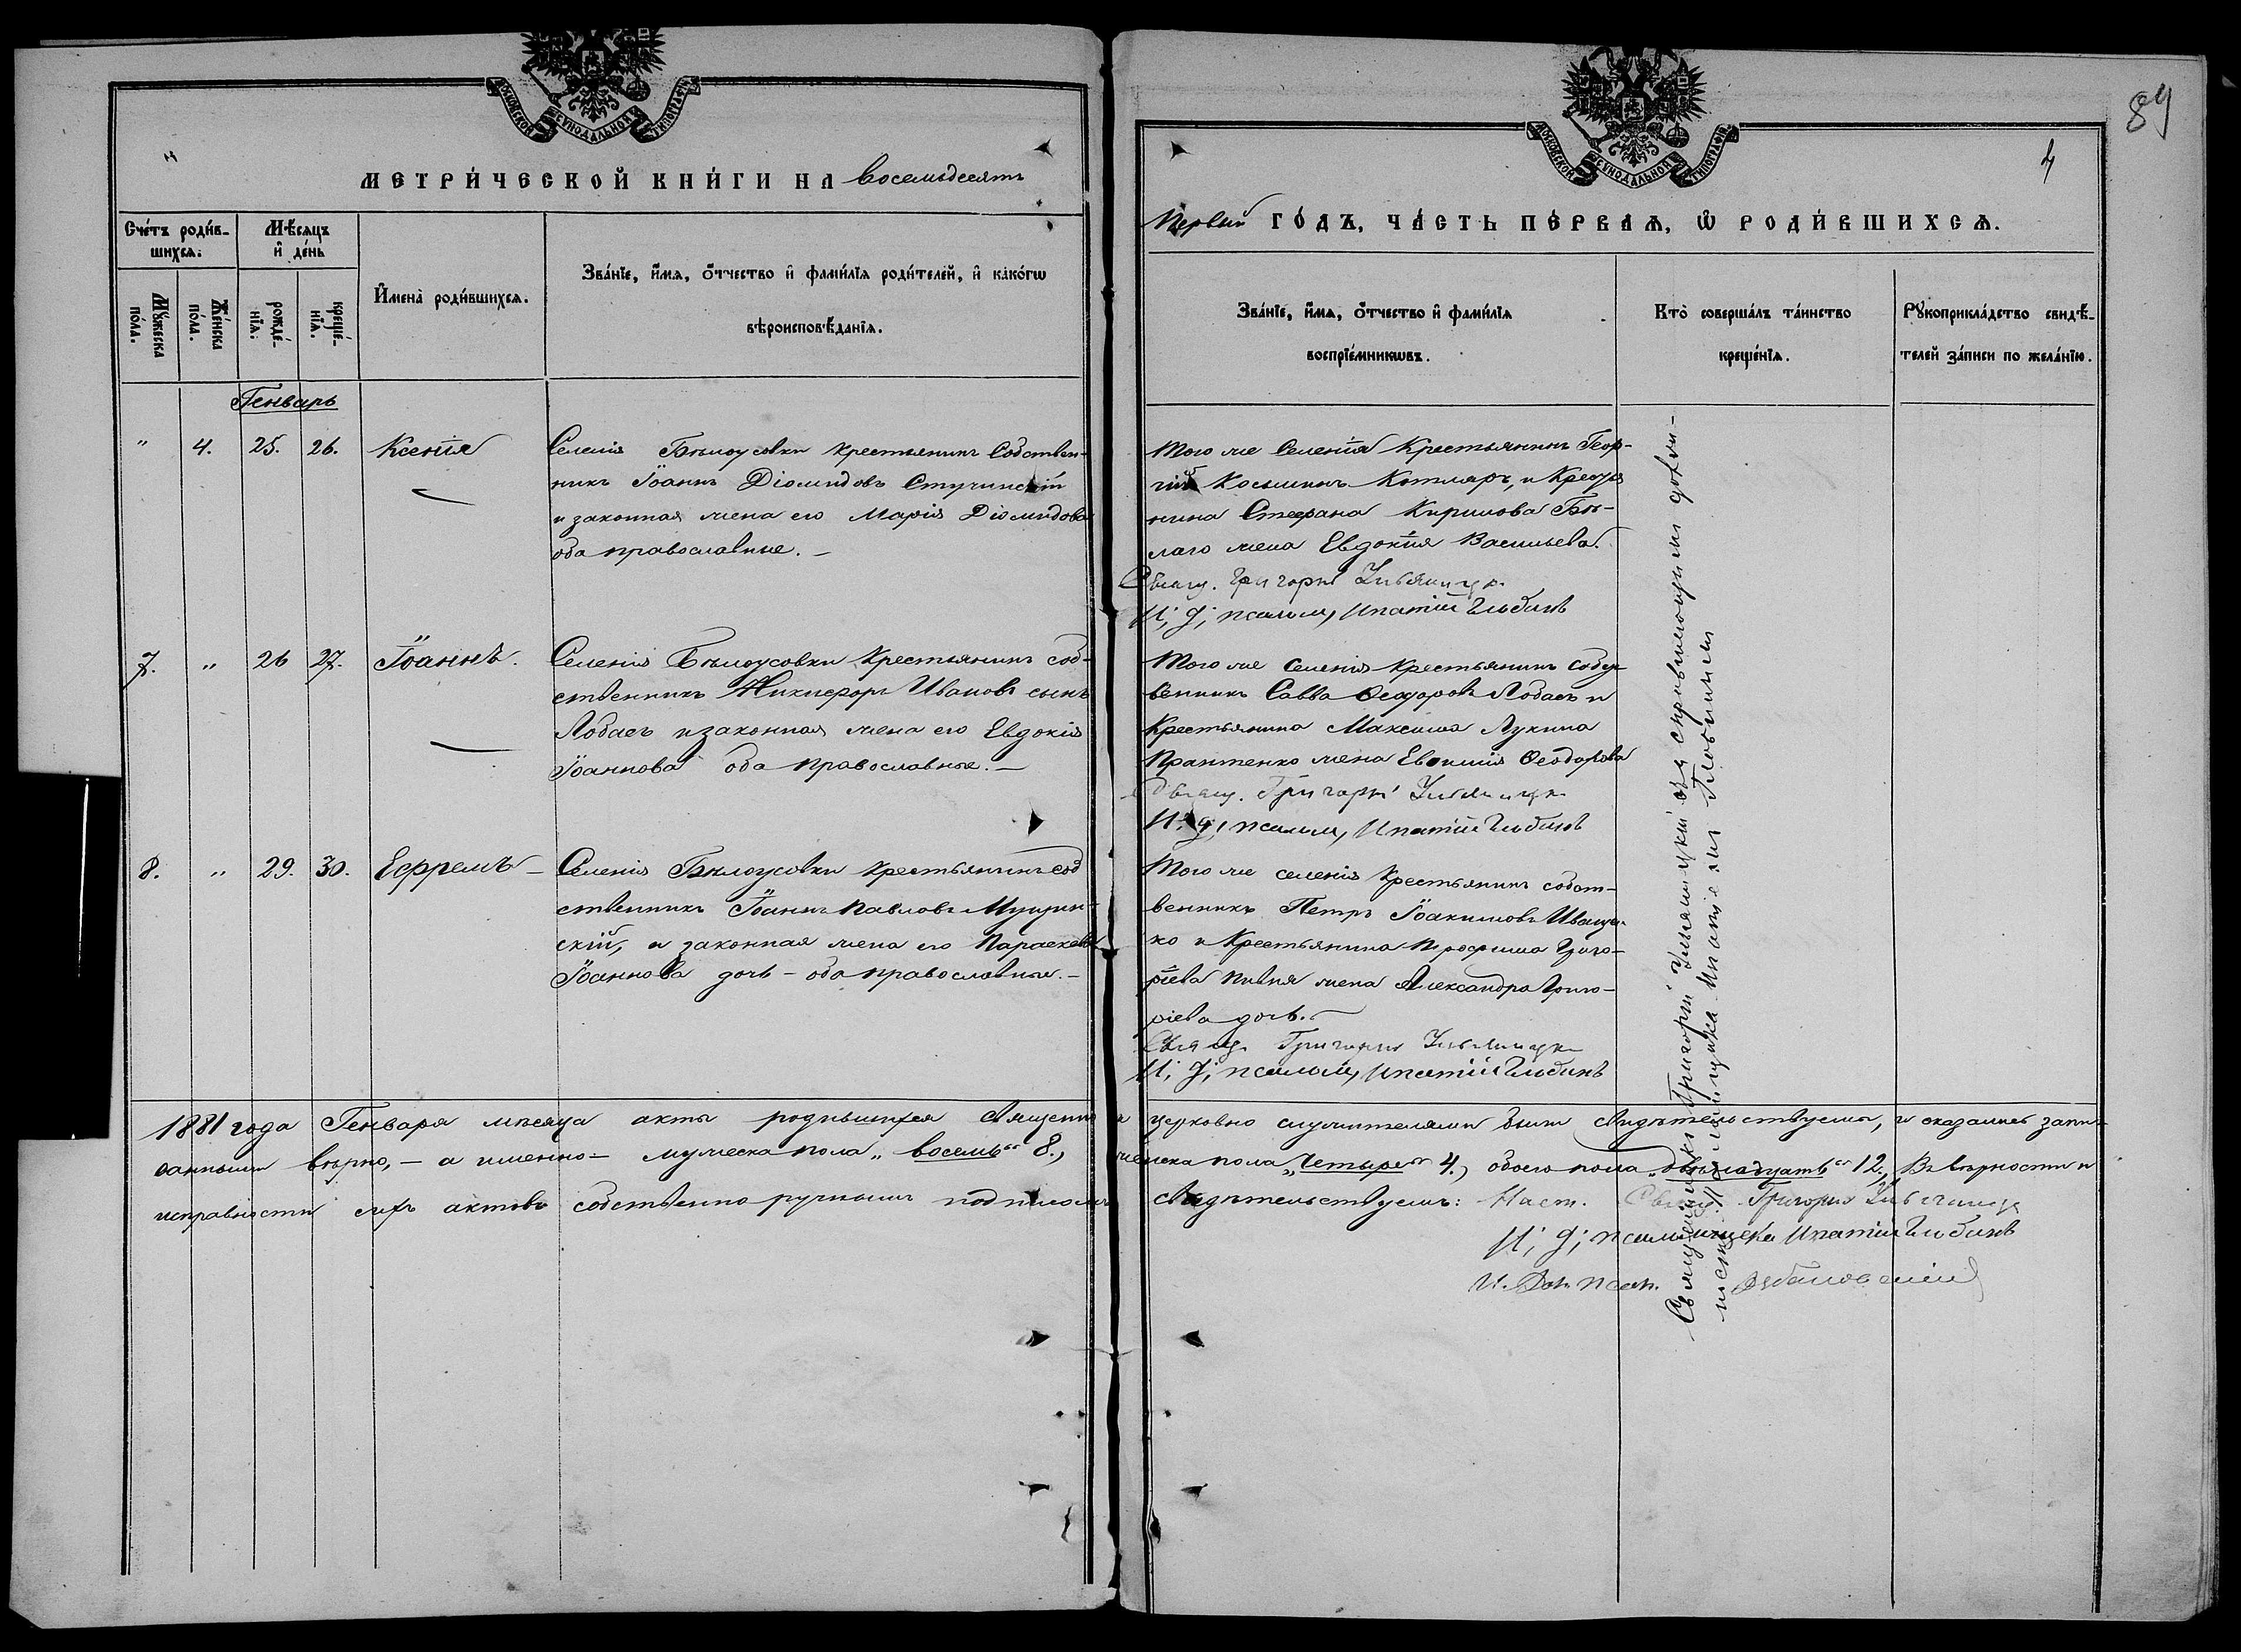 МОСКОВСКОЙ СѴНОДАЛЬНОЙ ТИПОГРАФІИ
МОСКОВСКОЙ СѴНОДАЛЬНОЙ ТИПОГРАФІИ
89
4
МЕТРИ́ЧЕСКОЙ КНИ́ГИ НА восемьдесятъ
Первый ГО́ДЪ, ЧА́СТЬ ПЕ́РВАѦ, Ѡ РОДИ́ВШИХСѦ.
Сче́тъ роди́в-
шихсѧ:
Мꙋ́жеска по́ла.
Же́нска по́ла.
Мѣ́сѧцъ
и҆ де́нь
рожде́-нїѧ.
креще́-нїѧ.
И҆мена̀ роди́вшихсѧ.
Зва́нїе, и҆́мѧ, ѻ҆́тчество и҆ фами́лїѧ роди́телей, и҆ како́гѡ
вѣроисповѣ́данїѧ.
Зва́нїе, и҆́мѧ, ѻ҆́тчество и҆ фами́лїѧ
воспрїе́мникѡвъ.
Кто̀ соверша́лъ та́инство
креще́нїѧ.
Рꙋкоприкла́дство свидѣ́-
телей за́писи по жела́нїю.
Генварь
" 4. 25. 26. Ксенія
Селенія Бѣлоусовки крестьянинъ Собствен-
никъ Іоаннъ Діомидовъ Стучинскій
и законная жена его Марія Діомидова
оба православные. –
Того же Селенія Крестьянинъ Геор-
гій Косьминъ Котляръ, и Крестья
нина Стефана Кирилова Бѣ-
лаго жена Евдокія Васильева.
Свящ. Григорій
И; д; псалом, Ипатій Глобинъ
7. " 26 27. Іоаннъ.
Селенія Бѣлоусовки Крестьянинъ соб-
ственникъ Никифоръ Ивановъ сынъ
Лобасъ и законная жена его Евдокія
Іоаннова оба православные. –
Того же селенія крестьянинъ собст
венникъ Савва Ѳеодоровъ Лобасъ и
Крестьянина Максима Лукина
жена Евѳимія Ѳеодорова
Свящ. Григорій
И; д; псалом, Ипатій Глобинъ
8. " 29. 30. Ефремъ –
Селенія Бѣлоусовки крестьянинъ соб
ственникъ Іоаннъ Павловъ
скій, и законная жена его Параскева
Іоаннова дочь – оба православные. –
Того же селенія Крестьянинъ собст-
венникъ Петръ Іоакимовъ Иващен
ко и Крестьянина Трофима Григо-
ріева Пивня жена Александра Григо-
ріева дочь. –
Свящ. Григорій
И; д; псалом, Ипатій Глобинъ
Священникъ Григорій съ
псаломщика Ипатіемъ Глобинымъ
1881 года Генваря мѣсяца акты родившихся Священно и церковно служителями были свидѣтельствуемы, и оказались запи-
санными вѣрно, – а именно – мужеска пола „восемь" 8., женска пола „четыре" 4., обоего пола „двѣнадцать" 12., Въ вѣрности и
исправности сихъ актовъ собственно ручнымъ подписомъ свидѣтельствуемъ: Наст. Свящ. Григорій
И; д; псаломщика Ипатій Глобинъ
И. Дол. псал.